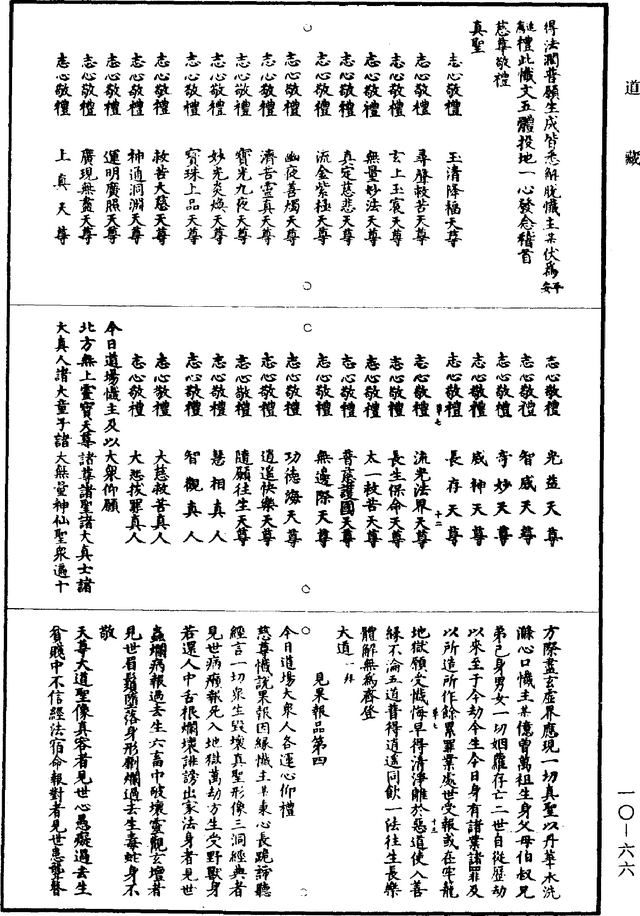 道藏
得法潤普願生成皆悉解脫懺主某伏為平安
追薦禮此懺文五體投地一心發念稽首
慈尊敬禮
真聖
志心敬禮 玉清降福天尊
志心敬禮 尋聲救苦天尊
志心敬禮 玄上玉宸天尊
志心敬禮 無量妙法天尊
志心敬禮 真定慈悲天尊
志心敬禮 流金紫極天尊
志心敬禮 幽夜善燭天尊
志心敬禮 濟苦靈真天尊
志心敬禮 寶光九夜天尊
志心敬禮 妙光炎煥天尊
志心敬禮 寶珠上品天尊
志心敬禮 救苦大慈天尊
志心敬禮 神通洞淵天尊
志心敬禮 運明廣照天尊
志心敬禮 廣現無盡天尊
志心敬禮 上真天尊
志心敬禮 光益天尊
志心敬禮 智威天尊
志心敬禮 奇妙天尊
志心敬禮 威神天尊
志心敬禮 長存天尊
志心敬禮 流光法界天尊
志心敬禮 長生保命天尊
志心敬禮 太一救苦天尊
志心敬禮 普底護國天尊
志心敬禮 無邊際天尊
志心敬禮 功德海天尊
志心敬禮 逍遙快樂天尊
志心敬禮 隨願往生天尊
志心敬禮 慧相真人
志心敬禮 智觀真人
志心敬禮 大慈救苦真人
志心敬禮 大悲拔罪真人
今日道場懺主及以大衆仰願
北方無上靈寶天尊諸尊諸聖諸大真士諸
大真人諸大童子諸大無量神仙聖衆過十
方際盡玄虛界應現一切真聖以丹華水洗
滌心口懺主某億曾萬祖生身父母伯叔兄
弟己身男女一切姻羅存亡二世自從歷劫
以來至于今劫今生今日身有諸業諸罪及
以所造所作餘累罪業處世受報或在牢籠
地獄願受懺悔早得清淨離於惡道使入善
緣不淪五道普得逍遙同飲一法往生長樂
體解無為齊登
大道一拜
見果報品第四
今日道場大衆人各運心仰禮
慈尊懺說果報因緣懺主某東心長跪諦聽
經言一切衆生毀壞真聖形像三洞經典者
見世病癩報死入地獄萬劫方生受野獸身
若還人中舌根爛壞誹謗出家法身者見世
蟲爛病報過去生六畜中破壞靈觀玄壇者
見世眉鬚墮落身形劇爛過去生毒蛇身不
敬
天尊大道聖像真容者見世心愚癡過去生
貧賤中不信經法宿命報對者見世患聾瞽
一〇—六六